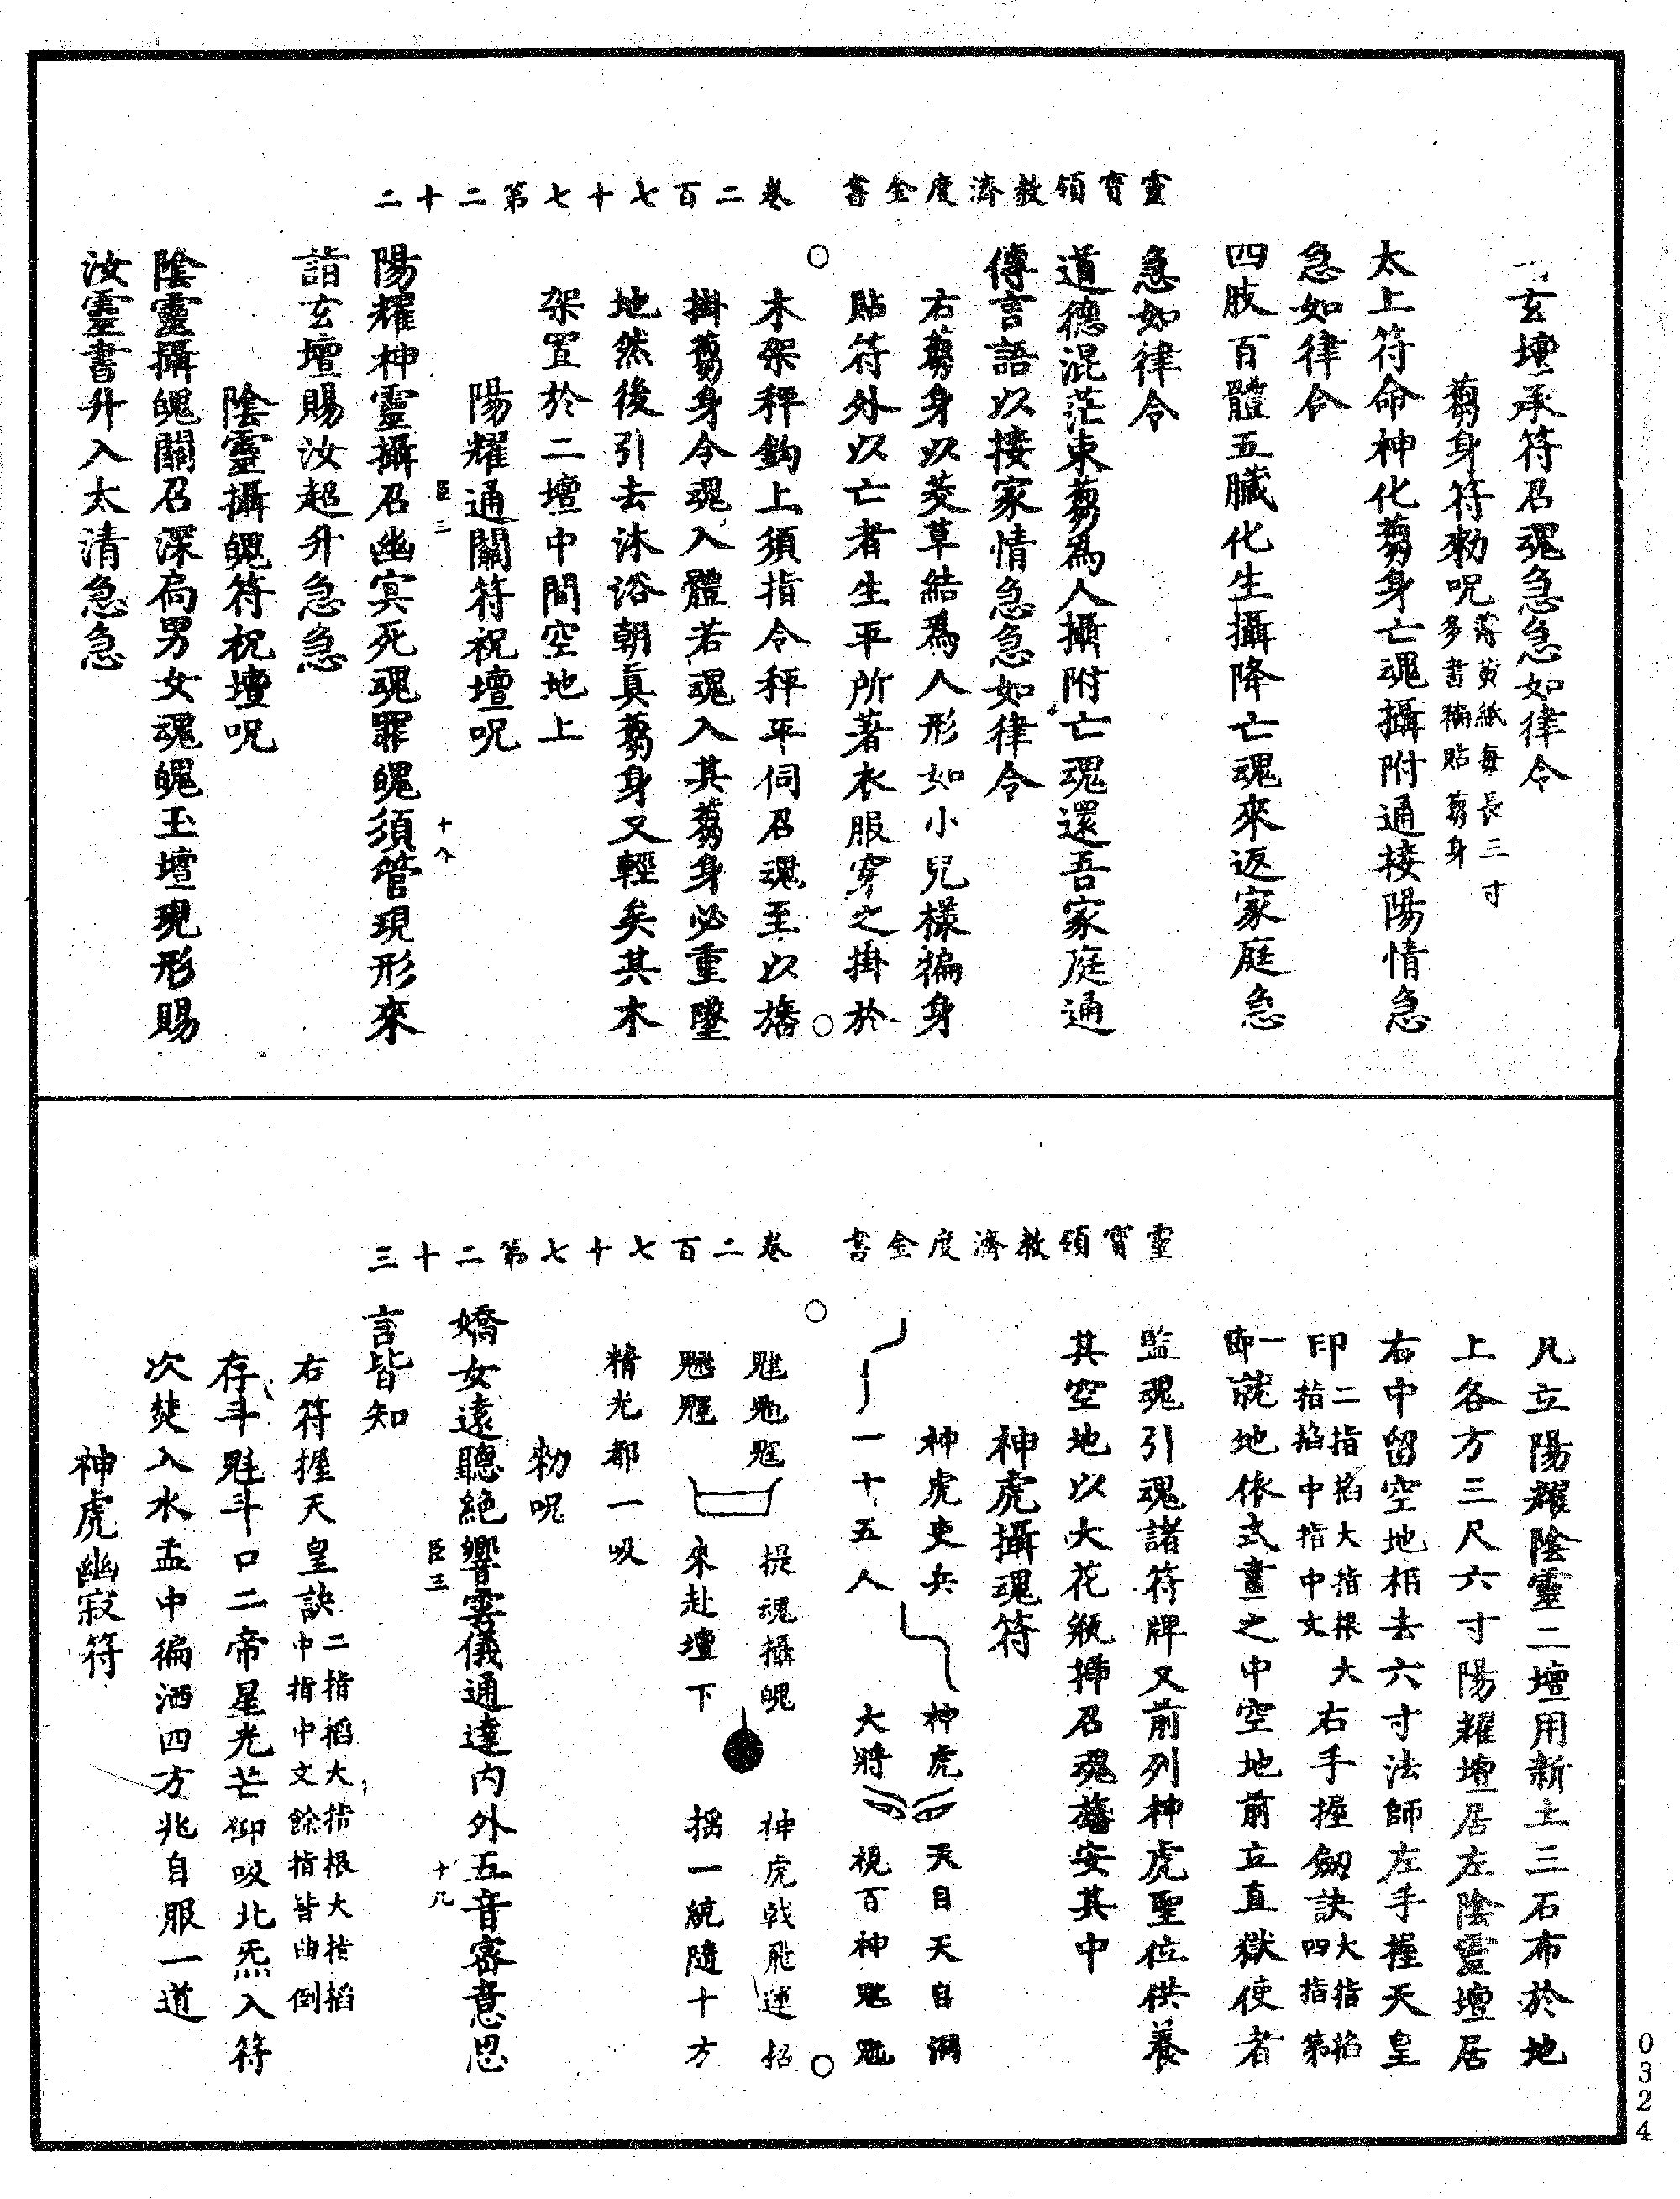 靈寶領教濟度金書　卷二百七十七第二十二
玄壇承符召魂急急如律令
蒭身符勑呪寫黃紙每長三寸多書徧貼蒭身
太上符命神化蒭身亡魂攝附通接陽情急
急如律令
四肢百體五臟化生攝降亡魂來返家庭急
急如律令
道德混茫束蒭為人攝附亡魂還吾家庭通
傳言語以接家情急急如律令
右蒭身以茭草結爲人形如小兒樣徧身
貼符外以亡者生平所著衣服穿之掛於
木架秤鈎上須指令秤平伺召魂至以旛
掛蒭身令魂入體若魂入其蒭身必重墜
地然後引去沐浴朝眞蒭身又輕矣其木
架置於二壇中間空地上
陽耀通關符祝壇呪
臣三　十八
陽耀神靈攝召幽冥死魂罪魄須管現形來
詣玄壇賜汝超升急急
陰靈攝魄符祝壇呪
陰靈攝魄關召深扃男女魂魄玉壇現形賜
汝靈書升入太清急急
靈寶領教濟度金書　卷二百七十七第二十三
凡立陽耀陰靈二壇用新土三石布於地
上各方三尺六寸陽耀壇居左陰靈壇居
右中留空地相去六寸法師左手握天皇
印二指掐大指根大指掐中指中文右手握劒訣大指掐四指第
一節就地依式畫之中空地前立直獄使者
監魂引魂諸符牌又前列神虎聖位供養
其空地以大花瓶揷召魂旛安其中
神虎攝魂符
神虎吏兵　神虎　天目天自洞
一十五人　大將　視百神
提魂攝魄　神虎戟飛連招
來赴壇下　搖一統隨十方
精光都一吸
勑呪
嬌女遠聽絕響雲儀通達內外五音審意思
臣三　十九
言皆知
右符握天皇訣二指掐大指根大指掐中指中文餘指皆曲倒
存斗魁斗口二帝星光芒仰吸北炁入符
次焚入水盂中徧洒四方兆自服一道
神虎幽寂符
0324